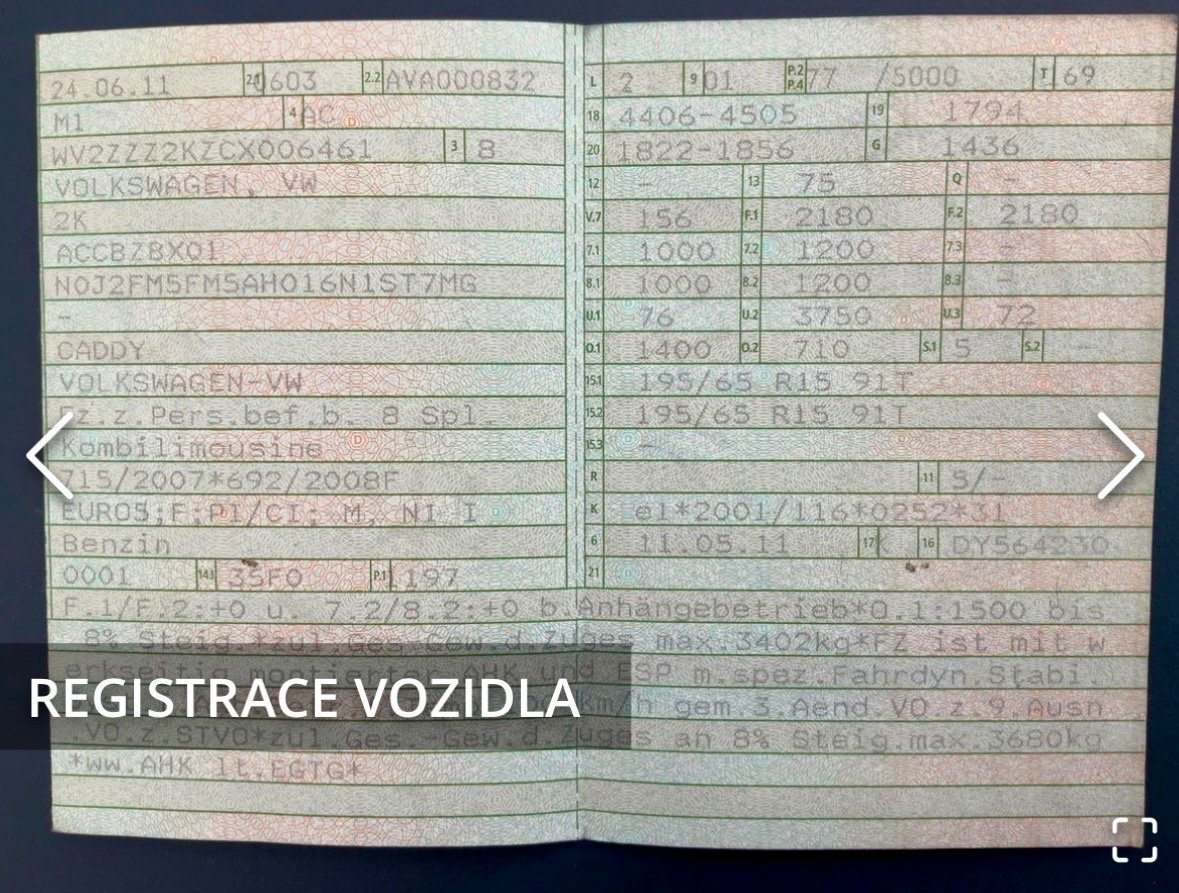 24.06.11 2.1 0603 2.2 AVA000832
M1 4 AC
WV2ZZZ2KZCX006461 3 8
VOLKSWAGEN, VW
2K
ACCBZBX01
N0J2FM5FM5AH016N1ST7MG
-
CADDY
VOLKSWAGEN-VW
Fz.z.Pers.bef.b. 8 Spl.
Kombilimousine
715/2007*692/2008F
EURO5;F;PI/CI; M, NI I
Benzin
0001 14.1 35F0 P.1 1197
L 2 9 01 P.2 P.4 77 /5000 T 169
18 4406-4505 19 1794
20 1822-1856 G 1436
12 - 13 75 Q -
V.7 156 F.1 2180 F.2 2180
7.1 1000 7.2 1200 7.3 -
8.1 1000 8.2 1200 8.3 -
U.1 76 U.2 3750 U.3 72
O.1 1400 O.2 710 S.1 5 S.2
15.1 195/65 R15 91T
15.2 195/65 R15 91T
15.3 -
R 11 5/-
K e1*2001/116*0252*31
6 11.05.11 17 K 16 DY564230
21
F.1/F.2:+0 u. 7.2/8.2:+0 b.Anhängebetrieb*O.1:1500 bis
8% Steig.*zul.Ges-Gew.d.Zuges max.3402kg*FZ ist mit w
erkseitig montierter AHK und ESP m.spez.Fahrdyn.Stabi.
km/h gem.3.Aend.VO.z.9.Ausn
.VO.z.STVO*zul.Ges.-Gew.d.Zuges an 8% Steig.max.3680kg
*ww.AHK lt.EGTG*
REGISTRACE VOZIDLA